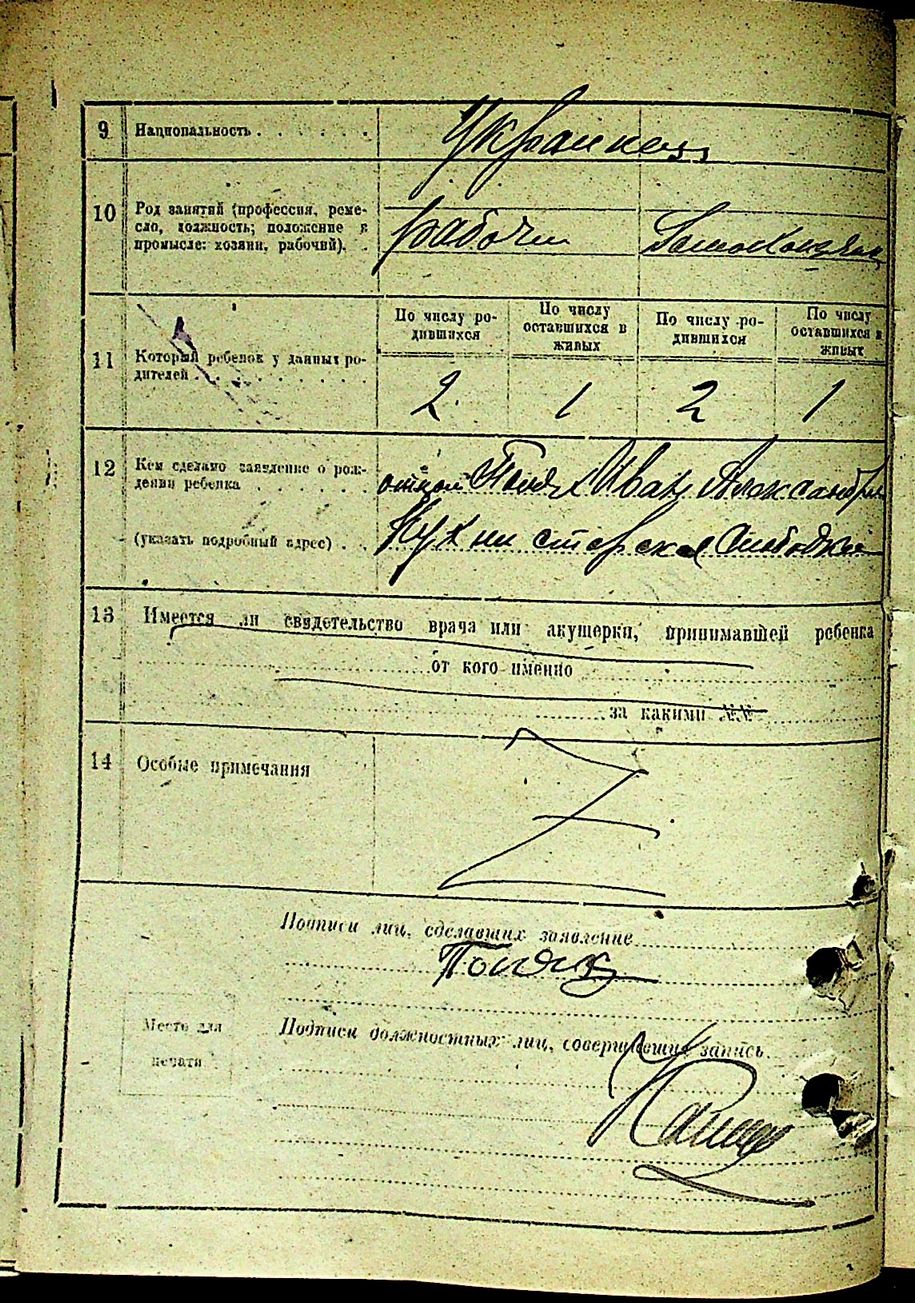 9 Национальность . . . . . . Украинец
10 Род занятий (профессия, реме-
сло, должность; положение в
промысле: хозяин, рабочий). .
рабочи
По числу ро-
дившихся
По числу
оставшихся в
живых
По числу ро-
дившихся
По числу
оставшихся в
живых
11 Который ребенок у данных ро-
дителей . . . . . . . . . .
2 1 2 1
12 Кем сделано заявление о рож-
дении ребенка . . . . . . .
отцом Иван Александр
(указать подробный адрес) . .
13 Имеется ли свидетельство врача или акушерки, принимавшей ребенка
от кого именно
за какими №№
14 Особые примечания
Подписи лиц, сделавших заявление
Место для
печати
Подписи должностных лиц, совершивших запись